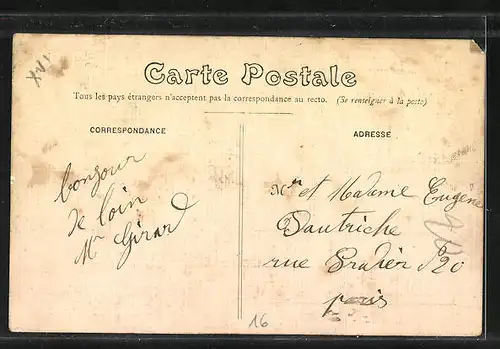 XVI
Carte Postale
Tous les pays étrangers n'acceptent pas la correspondance au recto. (Se renseigner à la poste)
CORRESPONDANCE
ADRESSE
bonjour
de loin
Mr Girard
Mr et Madame Eugene
Dautriche
rue Pradier 20
paris
16